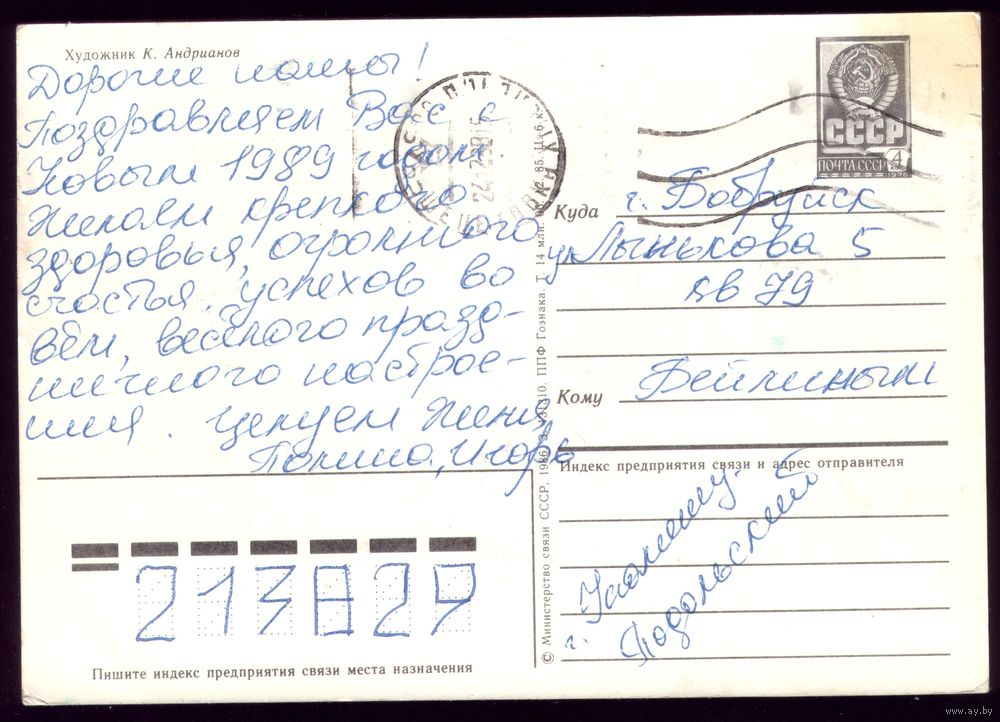 Художник К. Андрианов
Дорогие наши!
Поздравляем Вас с
Новым 1989 годом.
Желаем крепкого
здоровья, огромного
счастья, успехов во
всём, весёлого празд-
ничного настрое-
ния. Целуем Женя,
Полина, Игорь
СССР
ПОЧТА СССР
4
1976
Куда г. Бобруйск
ул Лынькова 5
кв 79
Кому Бейлиным
Индекс предприятия связи и адрес отправителя
Подольский
213829
Пишите индекс предприятия связи места назначения
© Министерство связи СССР, 1986. ППФ Гознака. Т. 14 млн. 85. Ц. 6 к.
www.ay.by